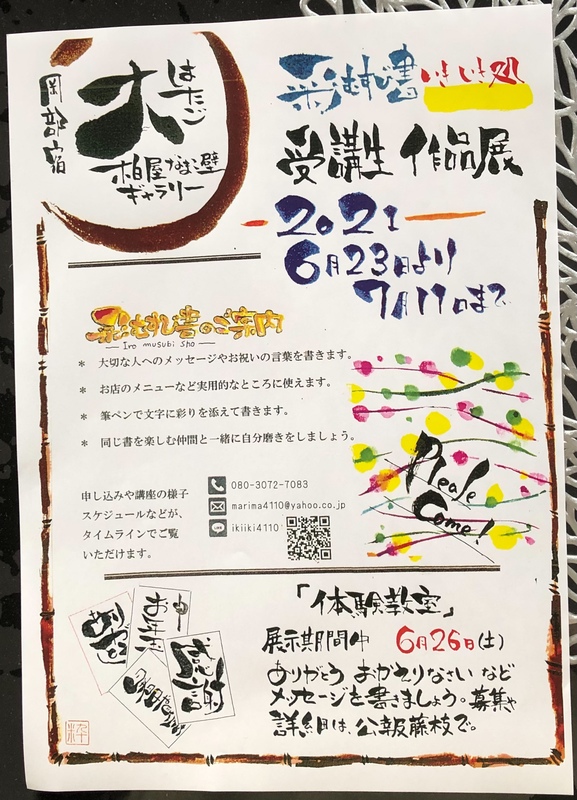 岡部宿
大
はたご
柏屋なまこ壁
ギャラリー
彩むすび書 いきいき処
受講生 作品展
2021
6月23日より
7月11日まで
彩むすび書のご案内
Iro musubi sho
* 大切な人へのメッセージやお祝いの言葉を書きます。
* お店のメニューなど実用的なところに使えます。
* 筆ペンで文字に彩りを添えて書きます。
* 同じ書を楽しむ仲間と一緒に自分磨きをしましょう。
Please
Come!
申し込みや講座の様子
スケジュールなどが、
タイムラインでご覧
いただけます。
080-3072-7083
marima4110@yahoo.co.jp
LINE ikiiki4110
「体験教室」
展示期間中 6月26日(土)
ありがとう おかえりなさい など
メッセージを書きましょう。募集や
詳細は、公報藤枝で。
お年玉
感謝